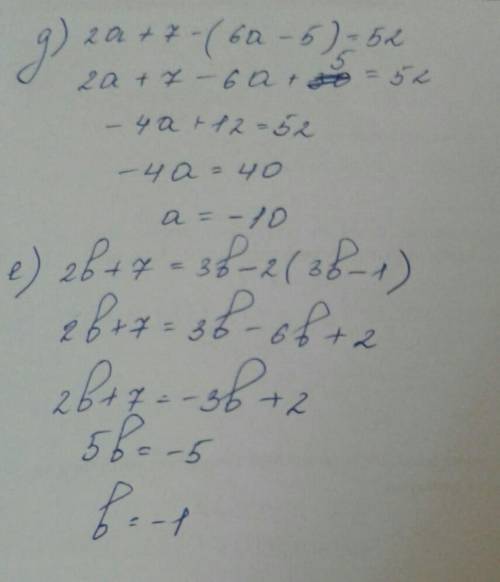 д) 2a + 7 - (6a - 5) = 52
2a + 7 - 6a + 5 = 52
- 4a + 12 = 52
- 4a = 40
a = -10
е) 2b + 7 = 3b - 2 (3b - 1)
2b + 7 = 3b - 6b + 2
2b + 7 = -3b + 2
5b = -5
b = -1